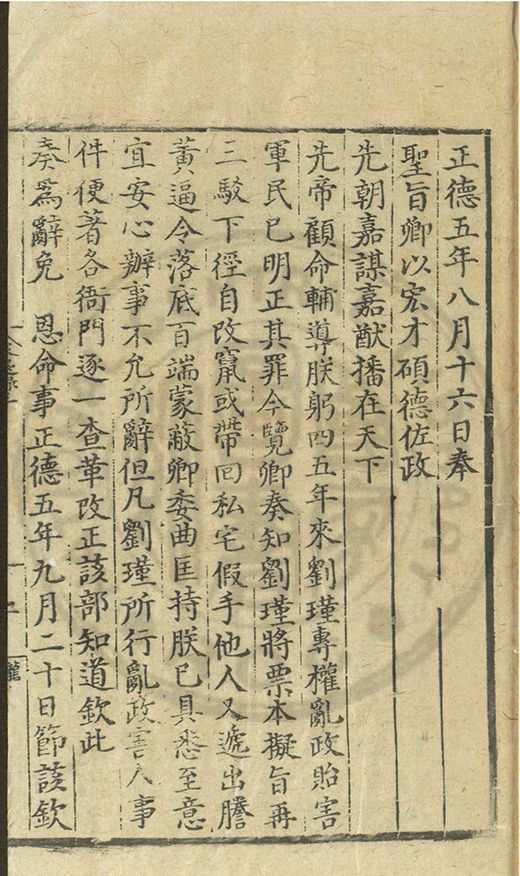 正德五年八月十六日奉
聖旨卿以宏才碩德佐政
先朝嘉謀嘉猷播在天下
先帝顧命輔導朕躬四五年來劉瑾專權亂政貽害
軍民已明正其罪今覽卿奏知劉瑾將票本擬旨再
三駁下徑自改竄或帶回私宅假手他人又遞出謄
黃逼令落底百端蒙蔽卿委曲匡持朕已具悉至意
宜安心辦事不允所辭但凡劉瑾所行亂政害人事
件便著各衙門逐一查革改正該部知道欽此
奏為辭免　恩命事正德五年九月二十日節該欽